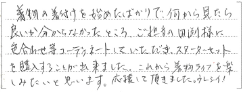 着物の着付けを始めたばかりで、何から見たら
良いか分からなかったところ、ご担当の田渕様に
色合わせ等コーディネートしていただき、スターターセット
を購入することが出来ました。これから着物ライフを楽
しみたいと思います。応援して頂きました。ウレシイ！